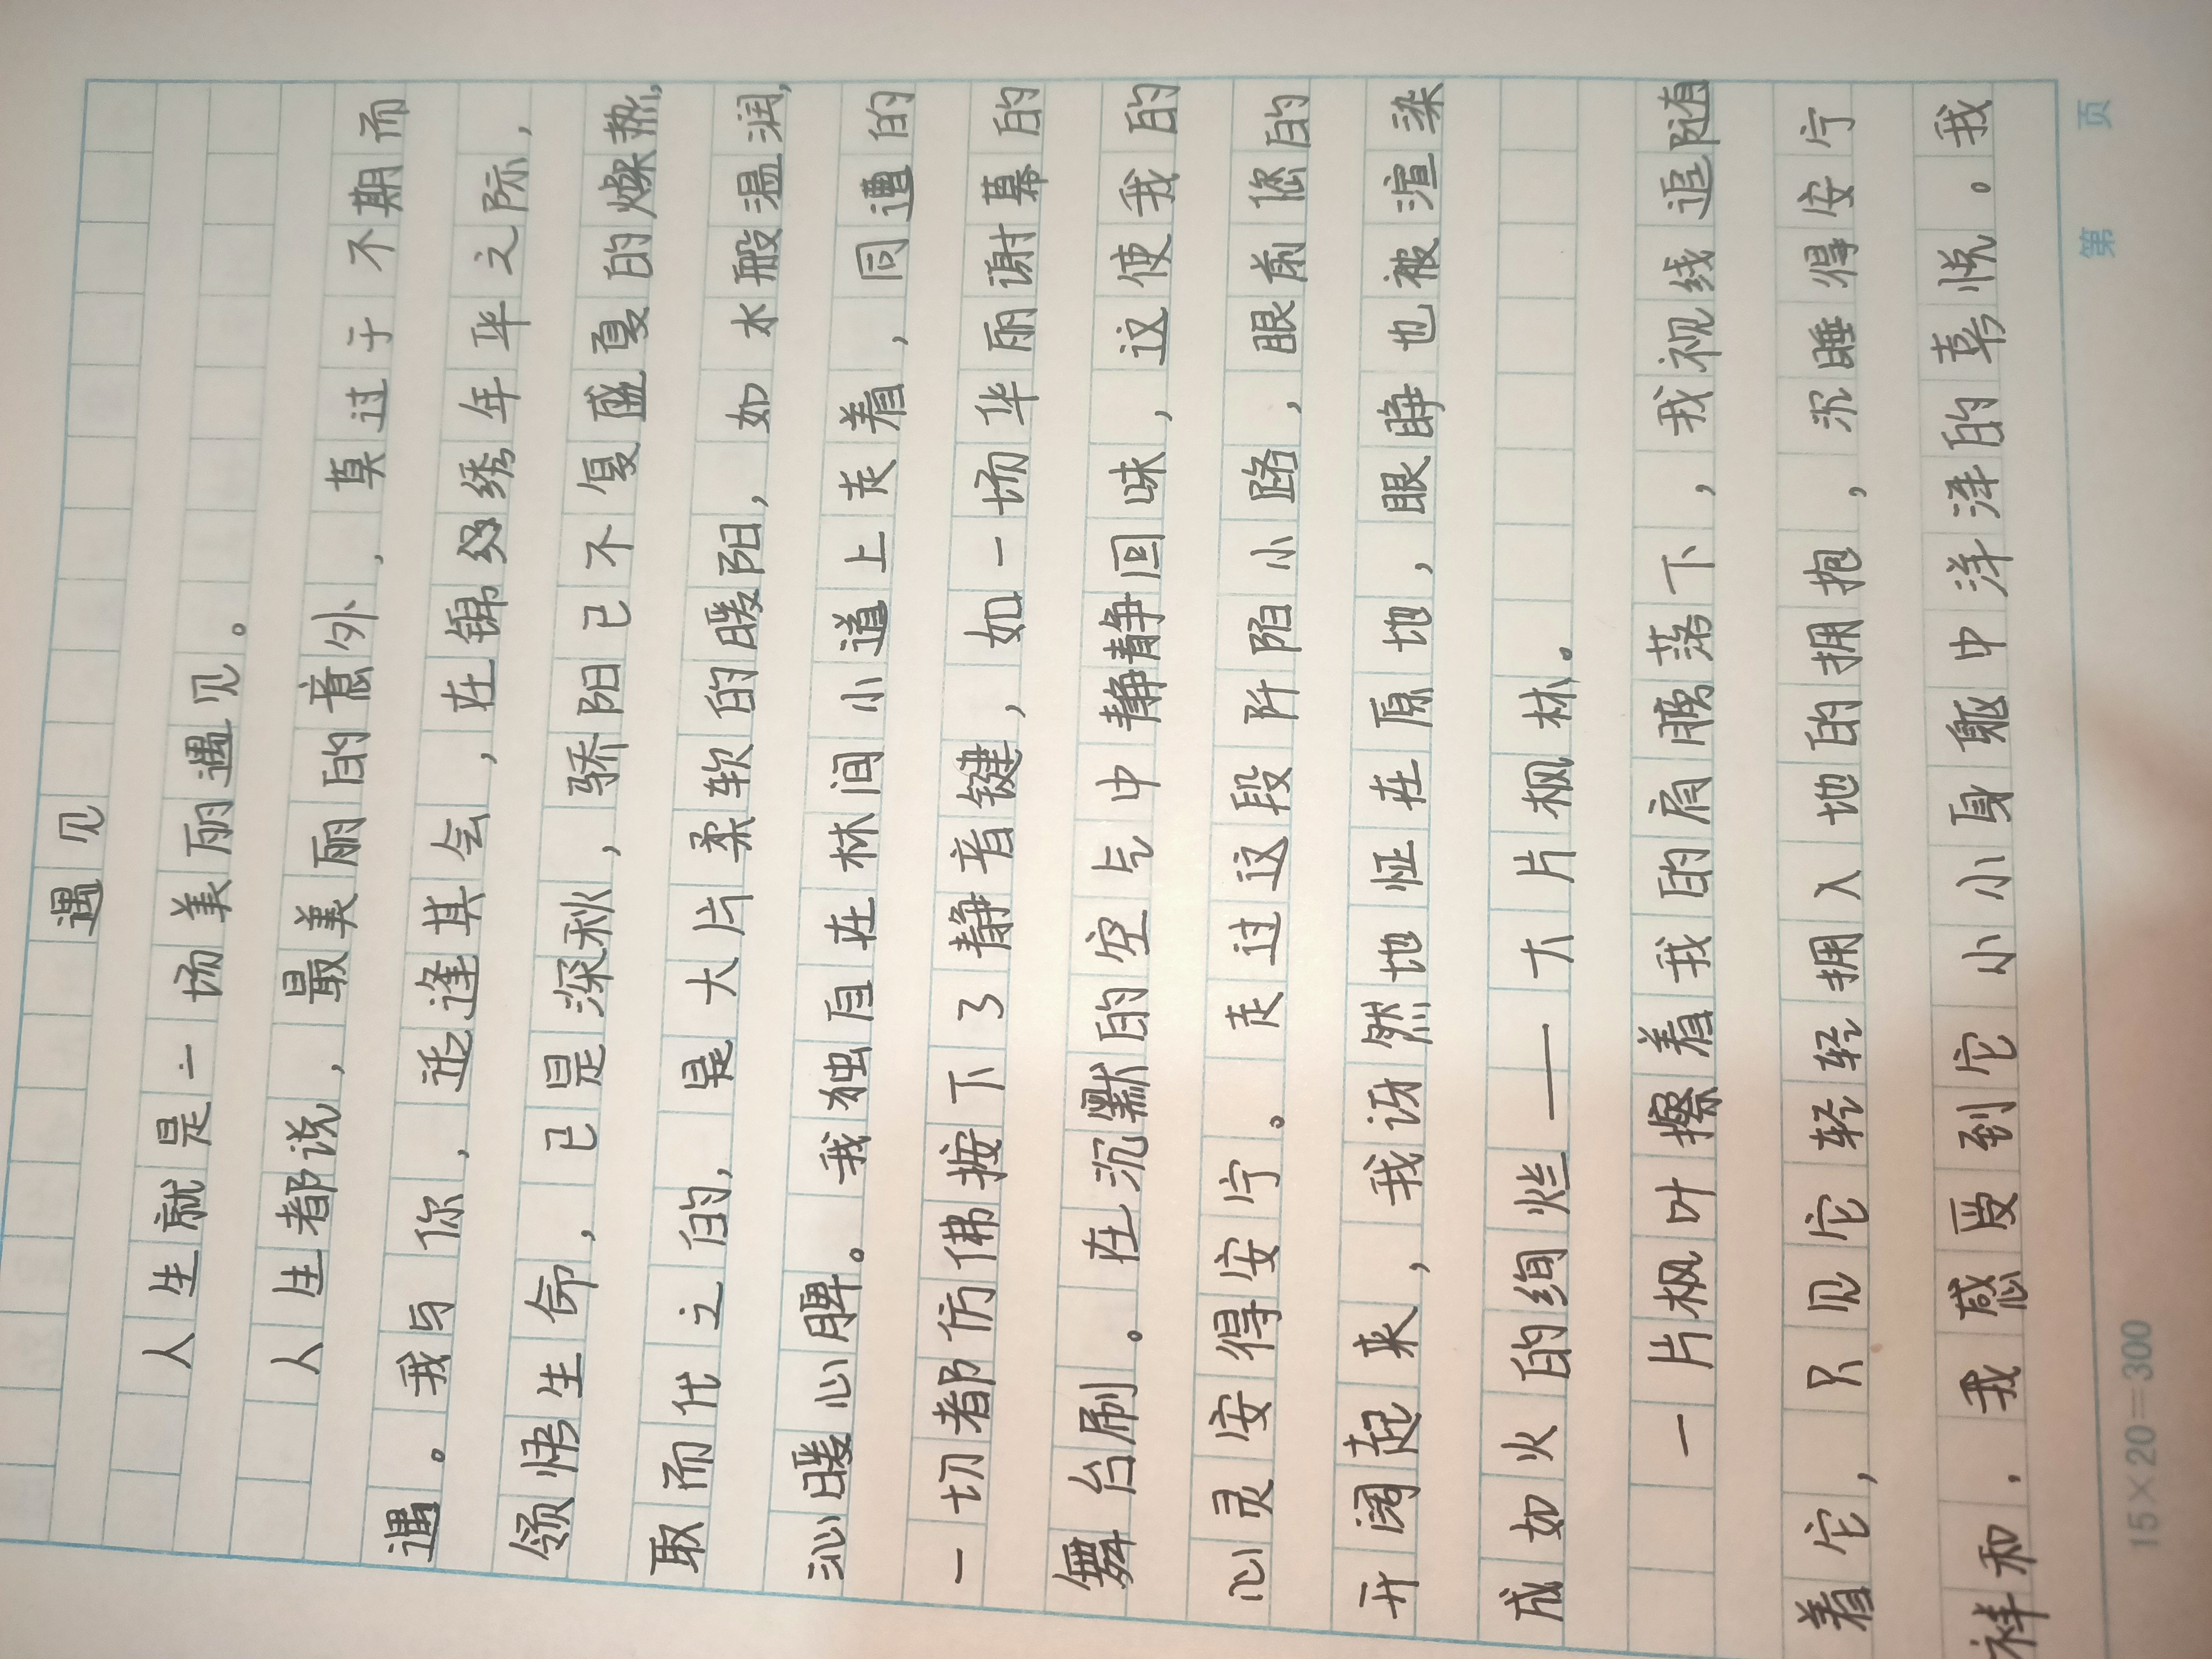 遇见
人生就是一场美丽遇见。
人生都说，最美丽的意外，莫过于不期而
遇。我与你，适逢其会，在锦绣年华之际，
领悟生命，已是深秋，骄阳已不复盛夏的燥热，
取而代之的，是大片柔软的暖阳，如水般温润，
沁暖心脾。我独自在林间小道上走着，同遭的
一切都仿佛按下了静音键，如一场华丽谢幕的
舞台剧。在沉默的空气中静静回味，这使我的
心灵安得安宁。走过这段阡陌小路，眼前您的
开阔起来，我讶然地怔在原地，眼睁也被渲染
成如火的绚烂——大片枫林。
一片枫叶擦着我的肩膀落下，我视线追随
着它，只见它轻轻拥入地的拥抱，沉睡得安宁
祥和，我感受到它小小身躯中洋洋的喜悦。我
15×20=300
第 页